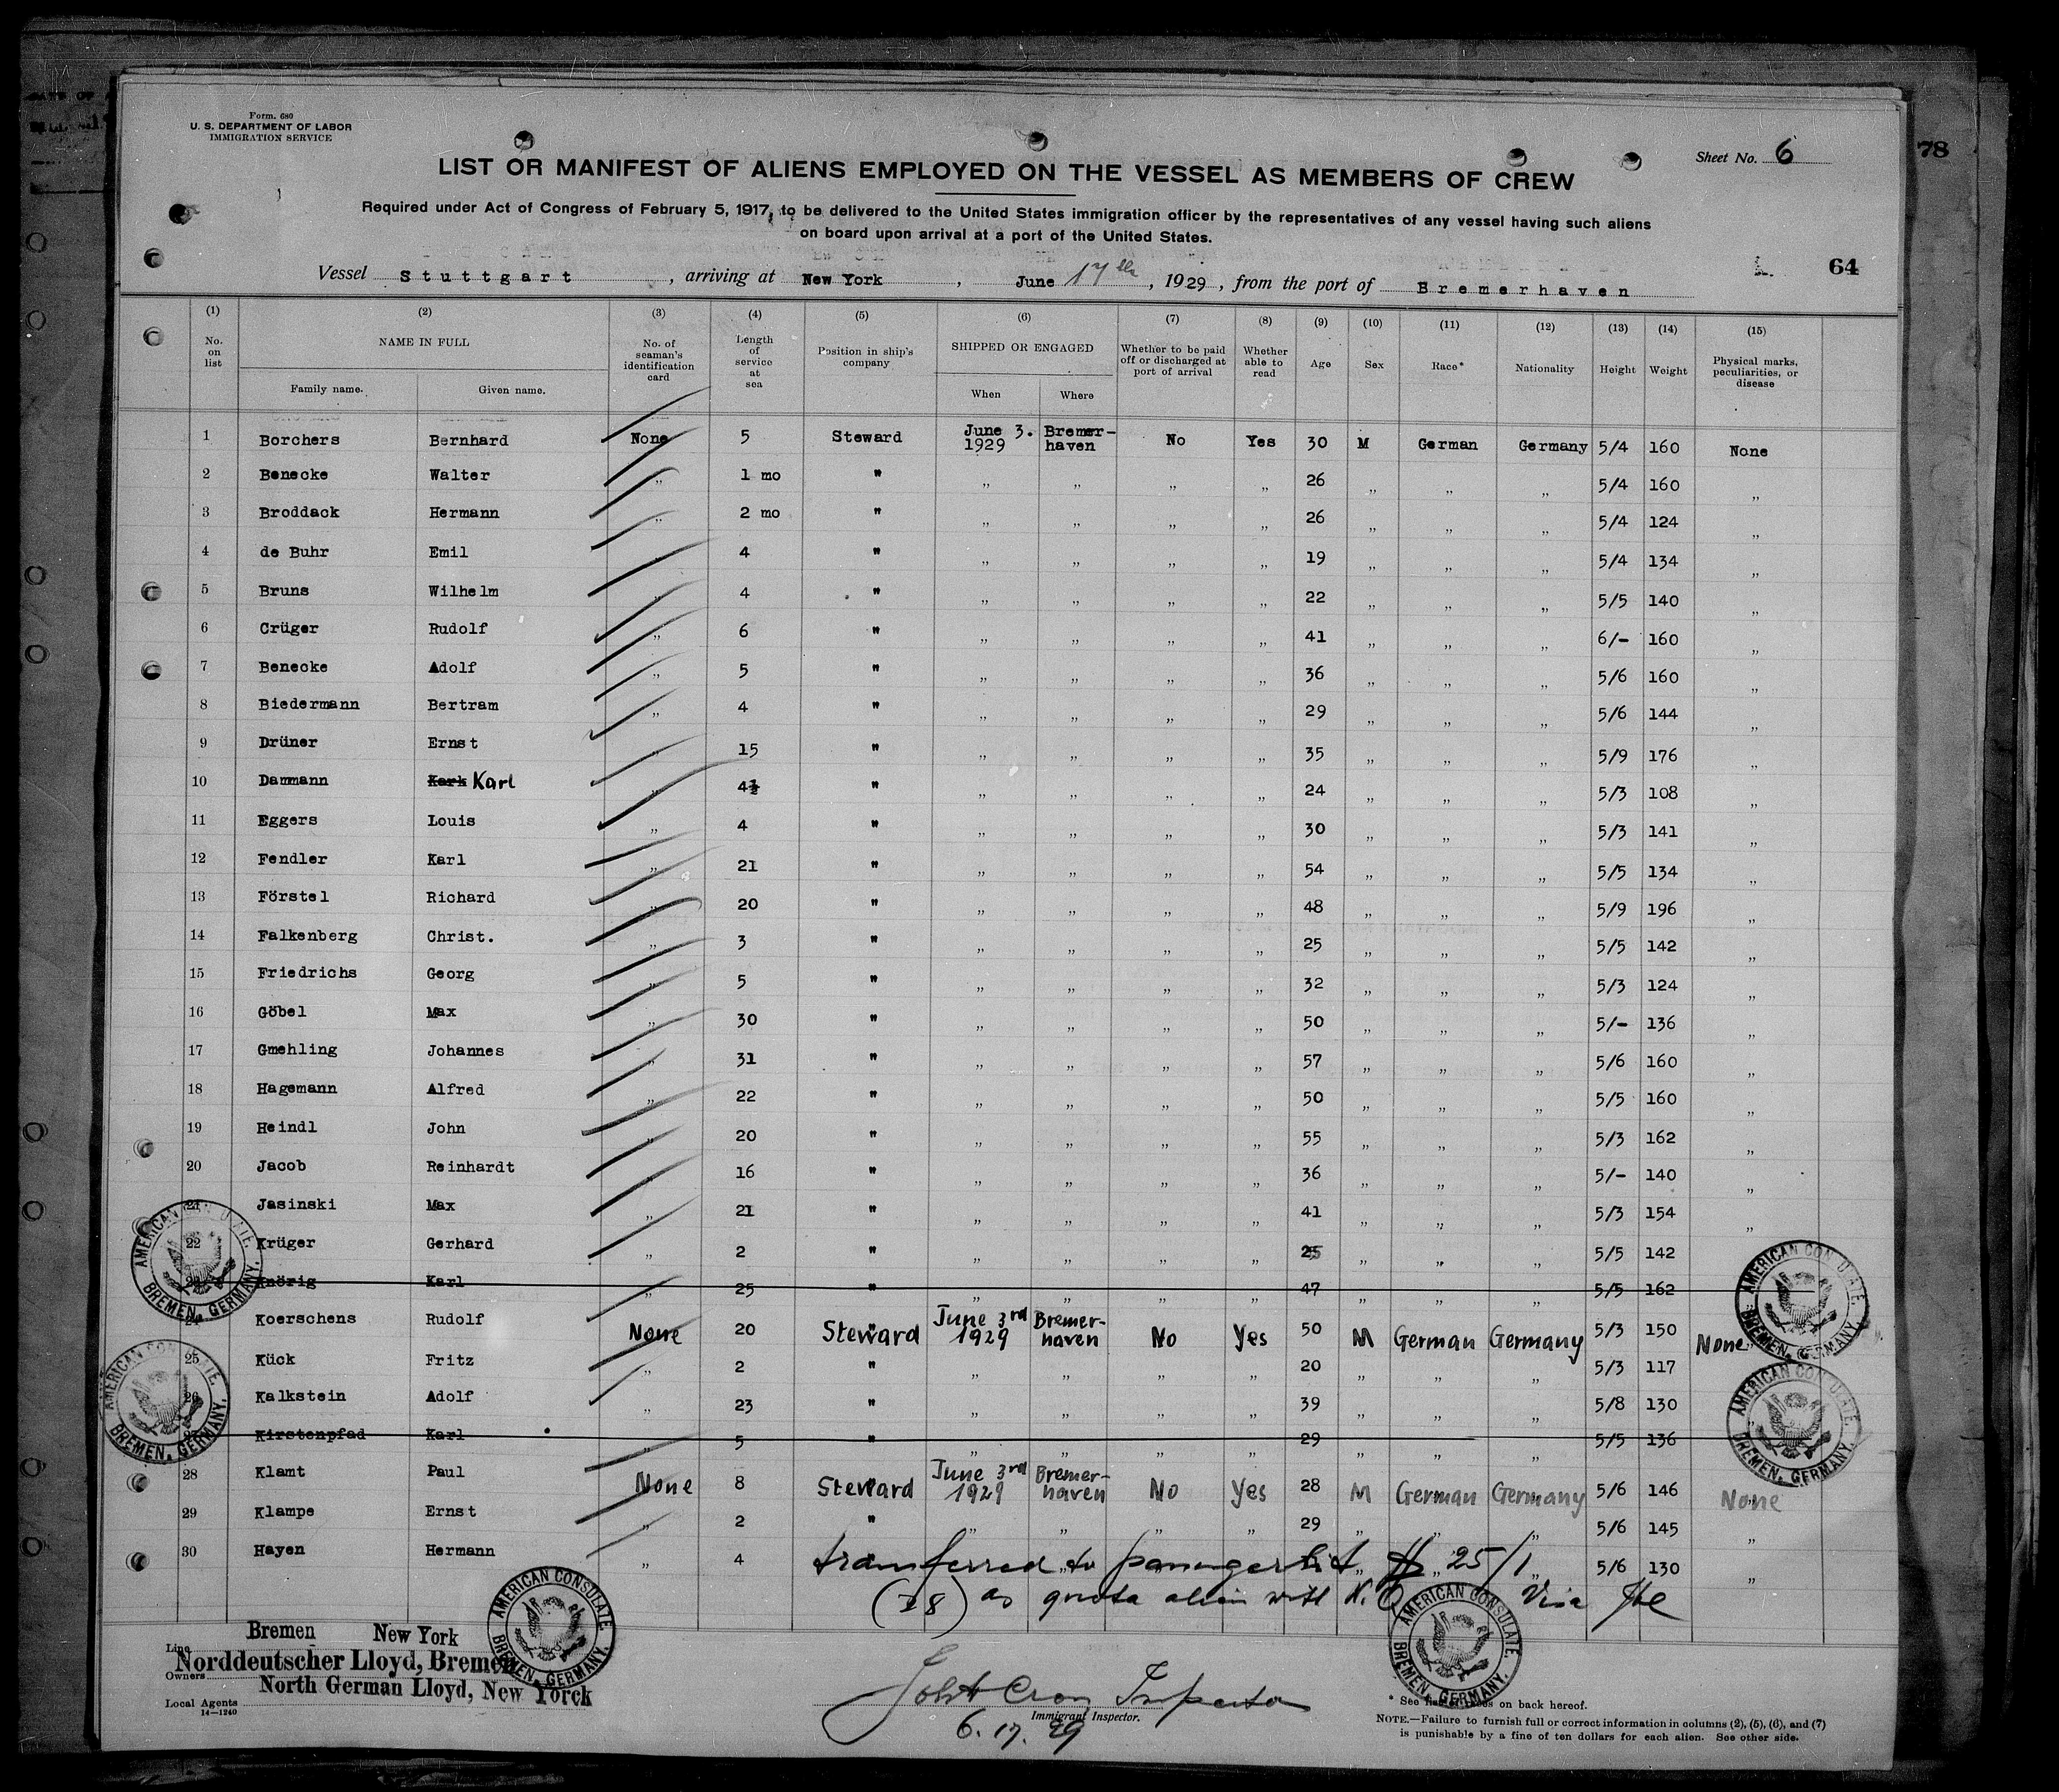 Form. 680
U. S. DEPARTMENT OF LABOR
IMMIGRATION SERVICE
Sheet No. 6
78
LIST OR MANIFEST OF ALIENS EMPLOYED ON THE VESSEL AS MEMBERS OF CREW
Required under Act of Congress of February 5, 1917, to be delivered to the United States immigration officer by the representatives of any vessel having such aliens
on board upon arrival at a port of the United States.
64
Vessel Stuttgart, arriving at New York, June 17th, 1929, from the port of Bremerhaven
(1) (2) (3) (4) (5) (6) (7) (8) (9) (10) (11) (12) (13) (14) (15)
No. on list NAME IN FULL Family name. Given name. No. of seaman's identification card Length of service at sea Position in ship's company SHIPPED OR ENGAGED When Where Whether to be paid off or discharged at port of arrival Whether able to read Age Sex Race* Nationality Height Weight Physical marks, peculiarities, or disease
1 Borchers Bernhard None 5 Steward June 3. 1929 Bremer-haven No Yes 30 M German Germany 5/4 160 None
2 Benecke Walter „ 1 mo " „ „ „ „ 26 „ „ „ 5/4 160 „
3 Broddack Hermann „ 2 mo " „ „ „ „ 26 „ „ „ 5/4 124 „
4 de Buhr Emil „ 4 " „ „ „ „ 19 „ „ „ 5/4 134 „
5 Bruns Wilhelm „ 4 " „ „ „ „ 22 „ „ „ 5/5 140 „
6 Crüger Rudolf „ 6 " „ „ „ „ 41 „ „ „ 6/- 160 „
7 Benecke Adolf „ 5 " „ „ „ „ 36 „ „ „ 5/6 160 „
8 Biedermann Bertram „ 4 " „ „ „ „ 29 „ „ „ 5/6 144 „
9 Drüner Ernst „ 15 " „ „ „ „ 35 „ „ „ 5/9 176 „
10 Dammann Kark Karl „ 4½ " „ „ „ „ 24 „ „ „ 5/3 108 „
11 Eggers Louis „ 4 " „ „ „ „ 30 „ „ „ 5/3 141 „
12 Fendler Karl „ 21 " „ „ „ „ 54 „ „ „ 5/5 134 „
13 Förstel Richard „ 20 " „ „ „ „ 48 „ „ „ 5/9 196 „
14 Falkenberg Christ. „ 3 " „ „ „ „ 25 „ „ „ 5/5 142 „
15 Friedrichs Georg „ 5 " „ „ „ „ 32 „ „ „ 5/3 124 „
16 Göbel Max „ 30 " „ „ „ „ 50 „ „ „ 5/- 136 „
17 Gmehling Johannes „ 31 " „ „ „ „ 57 „ „ „ 5/6 160 „
18 Hagemann Alfred „ 22 " „ „ „ „ 50 „ „ „ 5/5 160 „
19 Heindl John „ 20 " „ „ „ „ 55 „ „ „ 5/3 162 „
20 Jacob Reinhardt „ 16 " „ „ „ „ 36 „ „ „ 5/- 140 „
21 Jasinski Max „ 21 " „ „ „ „ 41 „ „ „ 5/3 154 „
22 Krüger Gerhard „ 2 " „ „ „ „ 25 „ „ „ 5/5 142
23 Knörig Karl „ 25 " „ „ „ „ 47 „ „ „ 5/5 162
24 Koerschens Rudolf None 20 Steward June 3rd 1929 Bremer-haven No Yes 50 M German Germany 5/3 150 None
25 Kück Fritz „ 2 " „ „ „ „ 20 „ „ „ 5/3 117
26 Kalkstein Adolf „ 23 " „ „ „ „ 39 „ „ „ 5/8 130 „
27 Kirstenpfad Karl „ 5 " „ „ „ „ 29 „ „ „ 5/5 136
28 Klamt Paul None 8 Steward June 3rd 1929 Bremer-haven No Yes 28 M German Germany 5/6 146 None
29 Klampe Ernst „ 2 " „ „ „ „ 29 „ „ „ 5/6 145 „
30 Hayen Hermann „ 4 transferred to passenger list # 25/1 5/6 130 „
(28) as quota alien with N.Q. Visa
AMERICAN CONSULATE. BREMEN, GERMANY.
AMERICAN CONSULATE. BREMEN, GERMANY.
AMERICAN CONSULATE. BREMEN, GERMANY.
AMERICAN CONSULATE. BREMEN, GERMANY.
AMERICAN CONSULATE. BREMEN, GERMANY.
AMERICAN CONSULATE. BREMEN, GERMANY.
Line Bremen New York
Owners Norddeutscher Lloyd, Bremen
Local Agents North German Lloyd, New Yorck
14—1240
Inspector
Immigrant Inspector.
6. 17. 29
* See list of races on back hereof.
NOTE.—Failure to furnish full or correct information in columns (2), (5), (6), and (7)
is punishable by a fine of ten dollars for each alien. See other side.